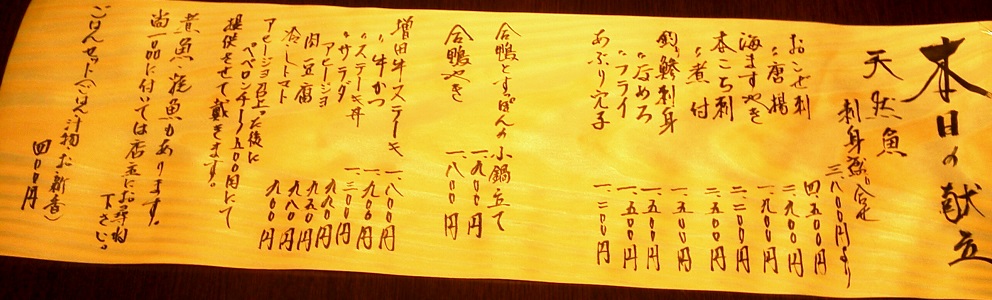 本日の献立
天然魚
刺身盛り合せ 三八〇〇円より
おこぜ刺 四、五〇〇円
〃唐揚 二、九〇〇円
海ますやき 一、九〇〇円
本こち刺 二、二〇〇円
〃煮付 二、五〇〇円
釣り鯵刺身 一、五〇〇円
〃なめろ 一、五〇〇円
〃フライ 一、五〇〇円
あぶり穴子 一、二〇〇円
合鴨とすっぽんの小鍋立て 一、九〇〇円
合鴨やき 一、八〇〇円
増田牛ステーキ 一、八〇〇円
〃牛かつ 一、九〇〇円
〃ステーキ丼 一、三〇〇円
〃サラダ 九八〇円
アヒージョ 九五〇円
肉豆腐 九八〇円
冷しトマト 九〇〇円
アヒージョ召上った後に
ペペロンチーノ五〇〇円にて
提供させて戴きます。
煮魚・焼魚もあります。
尚一品に付いては店主にお尋ね
下さい。
ごはんセット(ごはん、汁物、お新香)
四〇〇円